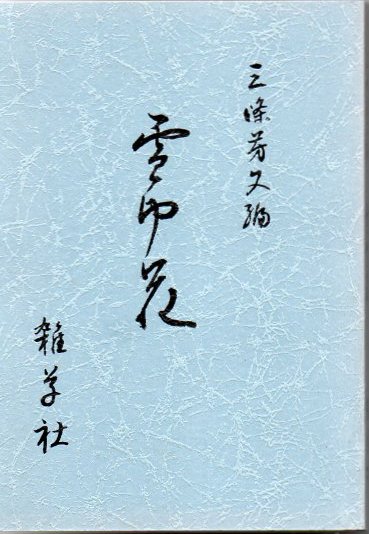 三條芳文編
雪中花
雑草社